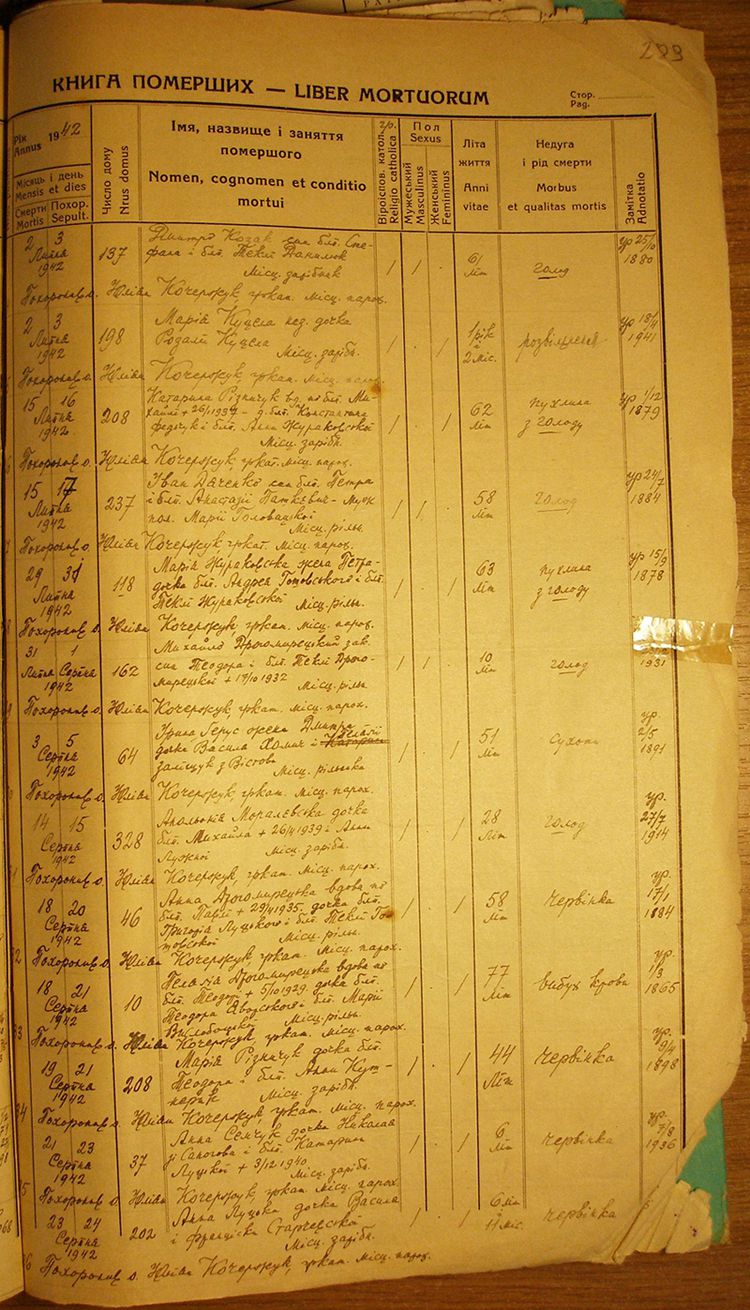 299
КНИГА ПОМЕРШИХ — LIBER MORTUORUM
Стор.
Pag.
Рік
Annus 1942
Місяць і день
Mensis et dies
Смерти
Mortis
Похор.
Sepult.
Число дому
Nrus domus
Імя, назвище і заняття
помершого
Nomen, cognomen et conditio
mortui
гр.
Віроіспов. катол.
Religio catholica
Пол
Sexus
Мужеський
Masculinus
Женський
Femininus
Літа
життя
Anni
vitae
Недуга
і рід смерти
Morbus
et qualitas mortis
Замітка
Adnotatio
2 3
Липня
1942
137
Дмитро Козак син бл. Сте-
фана і бл. Теклі Данилюк
Місц. зарібник
61
літ
голод
ур 25/10
1880
Похоронив о. Юліян Кочержук, гркат. місц. парох.
2 3
Липня
1942
198
Марія Куцела нез. дочка
Розалії Куцела
Місц. зарібн.
1 рік
і
2 міс.
ур 18/4
1941
Похоронив о. Юліян Кочержук, гркат. місц. парох.
15 16
Липня
1942
208
Катарина Різничук вд. по бл. Ми-
хайлі
д. бл. Константина
Федчук і бл. Анни Жураковської
Місц. зарібн.
62
літ
пухлина
з голоду
ур 1/12
1879
Похоронив о. Юліян Кочержук, гркат. місц. парох.
15 17
Липня
1942
237
Іван Дяченко син бл. Петра
і бл. Анастазії Паткевич - муж
пол. Марії Головацкої
Місц. рільн.
58
літ
голод
ур 24/7
1884
Похоронив о. Юліян Кочержук, гркат. місц. парох.
29 31
Липня
1942
118
Марія Жураковска жена Петра-
дочка бл. Андрея Готовського і бл.
Теклі Жураковскої Місц. рільн.
63
літ
пухлина
з голоду
ур 15/9
1878
Похоронив о. Юліян Кочержук, гркат. місц. парох.
31 1
Липня Серпня
1942
162
Михайло Дрогомирецкий
син Теодора і бл. Теклі Дрого-
мирецкої + 17/10 1932
Місц. рільн
10
літ
голод
1931
Похоронив о. Юліян Кочержук, гркат. місц. парох.
3 5
Серпня
1942
64
Ірина Герус жена Дмитра
дочка Василя Хомич і Катарини
Заліщук з Вістови
Місц. рільн.
51
літ
сухоти
ур.
2/5
1891
Похоронив о. Юліян Кочержук, гркат. місц. парох.
14 15
Серпня
1942
328
Апольонія Моралевська дочка
бл. Михайла + 26/4 1939 і Анни
Лужної Місц. зарібн.
28
літ
голод
ур.
27/7
1914
Похоронив о. Юліян Кочержук, гркат. місц. парох.
18 20
Серпня
1942
46
Анна Дрогомирецка вдова по
бл. Павлі + 29/4 1935. дочка бл.
Григорія Луцького і бл. Теклі Го-
товської Місц. рільн.
58
літ
червінка
ур.
17/1
1884
Похоронив о. Юліян Кочержук, гркат. місц. парох.
18 21
Серпня
1942
10
Пелагія Дрогомирецка вдова по
бл. Теодорі + 5/10 1929. дочка бл.
Теодора Яворского і бл. Марії
Вислобоцкої Місц. рільн.
77
літ
вибух крови
ур.
1/3
1865
Похоронив о. Юліян Кочержук, гркат. місц. парох.
19 21
Серпня
1942
208
Марія Різничук дочка бл.
Теодора і бл. Анни Кут-
Місц. зарібн.
44
літ
червінка
ур.
9/4
1898
Похоронив о. Юліян Кочержук, гркат. місц. парох.
21 23
Серпня
1942
37
Анна Семчук дочка Николая
і бл. Катарини
Луцкої + 3/12 1940
Місц. зарібн.
6
літ
червінка
ур.
7/8
1936
Похоронив о. Юліян Кочержук, гркат. місц. парох.
23 24
Серпня
1942
202
Анна Луцка дочка Василя
і Франціски
Місц. зарібн.
6 літ
і
11 міс.
червінка
Похоронив о. Юліян Кочержук, гркат. місц. парох.